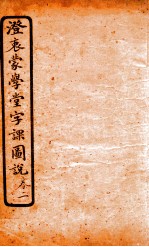 澄衷蒙學堂字課圖說卷二